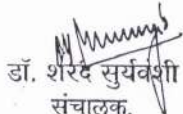 डॉ. शरद सुर्यवंशी
संचालक.